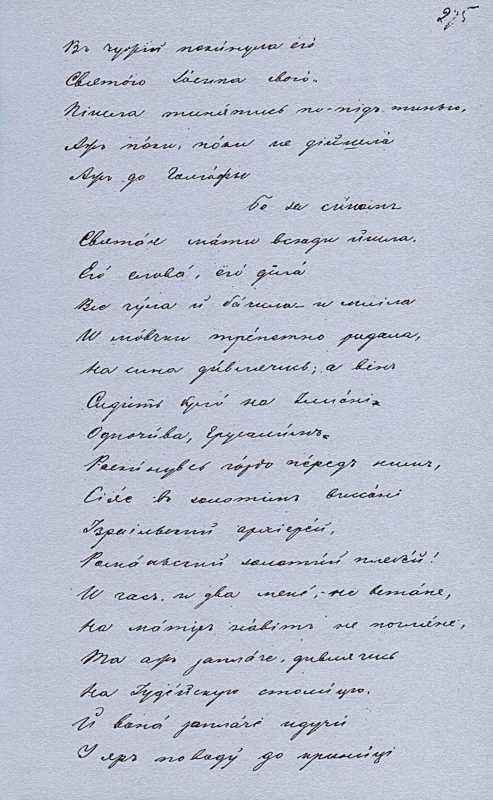 275
Въ чужій покинула ёго
Святого Іосипа свого.
Пішла тинятись по-підъ тинью,
Ажъ поки, поки не дійшла
Ажъ до Галгофы
Бо за синомъ
Святая мати всюди йшла.
Его слова, ёго діла
Все чула й бачила и мліла
И мовчки трепетно ридала,
На сина дивлячись; а вінъ
Сидить було на Елеоні
Одпочива, Ерусалимъ
Роскинувсь гордо передъ нимъ,
Сіяє въ золотімъ виссоні
Ізраільський архієрей,
Романський золотий плебей!
И часъ и два мене, не встане,
На матіръ навіть не погляне,
Та ажъ заплаче, дивлячись
На Іудейскую столицю.
Й вона заплаче идучи
У яръ по воду до криниці